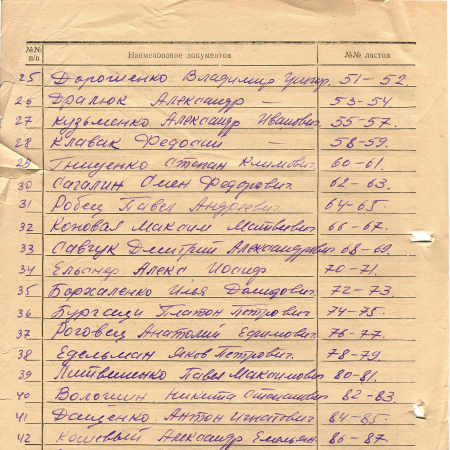 №№ п/п Наименование документов №№ листов
25 Дорошенко Владимир Григор. 51-52.
26 Дралюк Александр — 53-54.
27 Кузьменко Александр Иванович 55-57.
28 Клавак Федосий — 58-59.
29 Гнищенко Степан Климович 60-61.
30 Сагалин Семен Федорович. 62-63.
31 Робец Павел Андреевич 64-65.
32 Коновал Максим Матвеевич 66-67.
33 Савчук Дмитрий Александрович 68-69.
34 Алекса Иосиф 70-71.
35 Бархаленко Илья Демидович. 72-73.
36 Платон Петрович. 74-75.
37 Роговец Анатолий Ефимович. 76-77.
38 Едельман Яков Петрович. 78-79.
39 Литвиненко Павел Максимович 80-81.
40 Волошин Никита Степанович 82-83.
41 Дащенко Антон Игнатович 84-85.
42 Кошевый Александр Емельян. 86-87